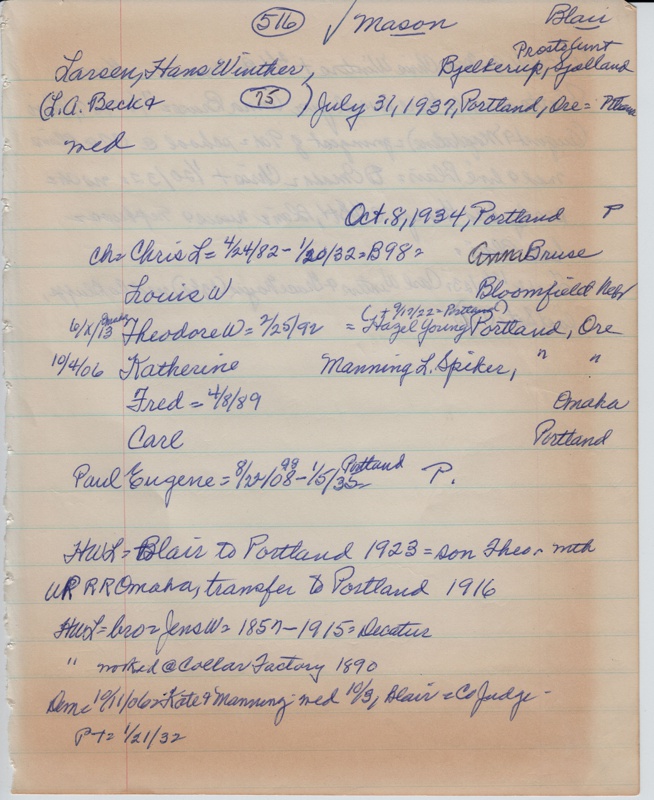 516 ✓ Mason Blair
Larsen, Hans Winther, Bjelkerup, Sjolland
(L.A. Beck + 75 ) July 31, 1937, Portland, Ore =
med
Oct. 8, 1934, Portland P
Ch = Chris L = 4/24/82 - 1/20/32 = B98 = Ann Bruse
Louis W Bloomfield Nebr
(+ 9/17/22 = Portland)
6/X/13 Theodore W = 2/25/92 = Hazel Young Portland, Ore
10/4/06 Katherine Manning L. Spiker, " "
Fred = 4/8/89 Omaha
Carl Portland
Paul Eugene = 8/22/08 - 1/5/35 = Portland P.
HWL = Blair to Portland 1923 = son Theo -
UP RR Omaha, transfer to Portland 1916
HWL = bro = Jens W = 1857 - 1915 = Decatur
" worked @ Collar Factory 1890
Dem = 10/11/06 = Kate & Manning med 10/3, Blair = Co Judge -
P T = 1/21/32